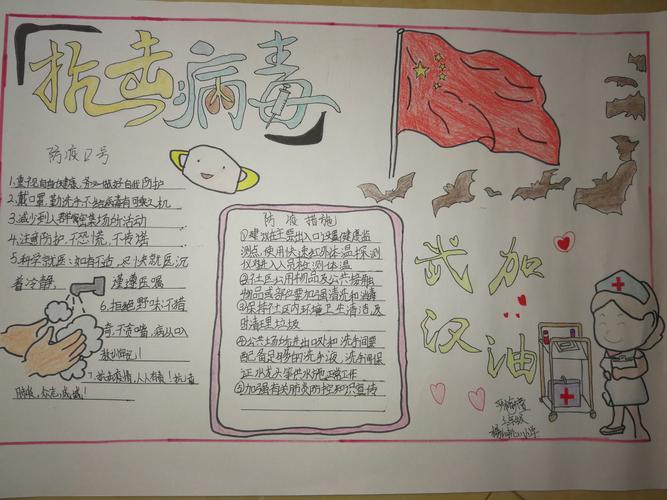 抗击病毒
防疫口号
1.重视自身健康,务必做好自我防护
2.戴口罩,勤洗手,不给病毒有可乘之机
3.减少到人群密集场所活动
4.注意防护,不恐慌,不传谣
5.科学就医:如有不适,尽快就医,沉
着冷静,谨遵医嘱
6.拒绝野味不猎
奇,不贪嘴,病从口
7.抗击疫情,人人有责!抗
防疫措施
①建议在主要出入口设置健康监
测点,使用快速红外体温探测
仪对进入人员检测体温
②社区公用物品及公共接触
物品或部位要加强清洗和消毒
③保持社区内环境卫生清洁,及
时清理垃圾
④公共场场进出口处和洗手间要
配备足够的洗手液,洗手间保
证水龙头等供水设施正常工作
⑤加强有关肺炎防控知识宣传
武汉
加油
三年级
小学